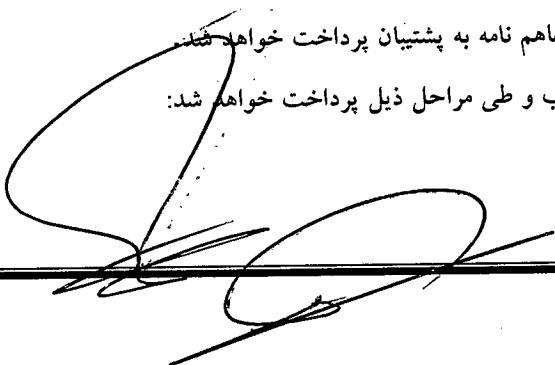 اهم نامه به پشتیبان پرداخت خواهد شد.
ب و طی مراحل ذیل پرداخت خواهد شد: